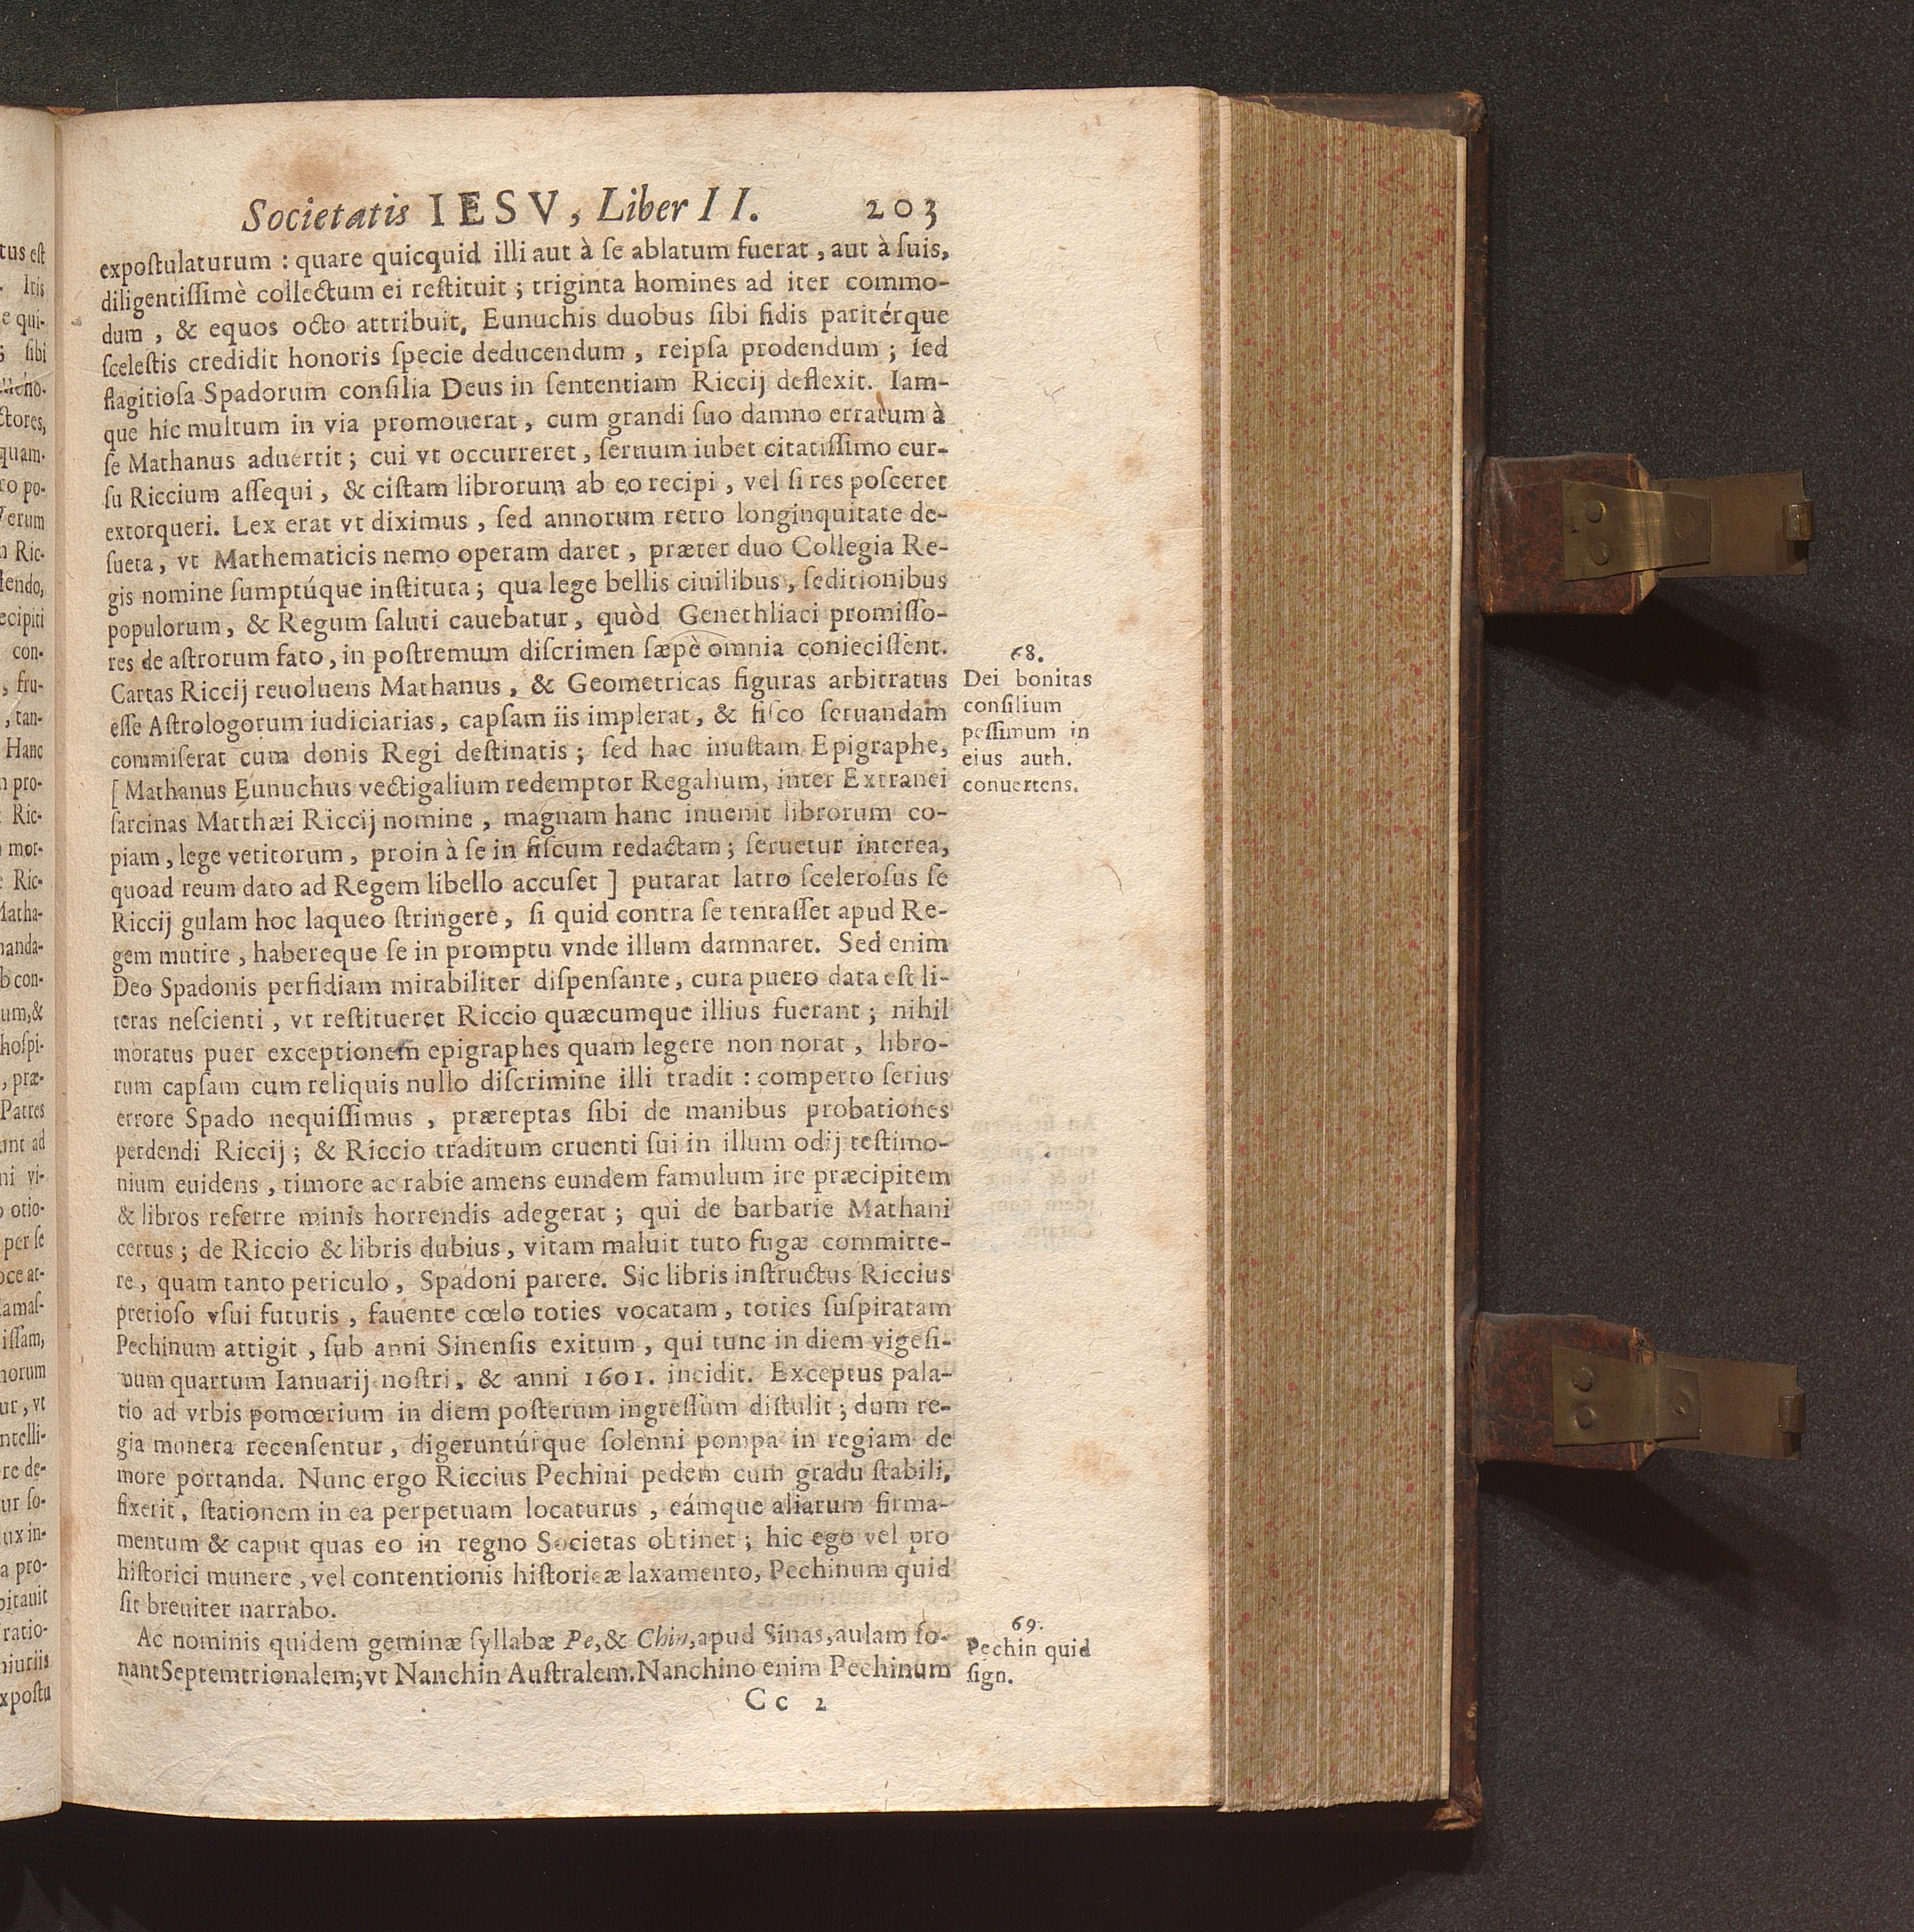 Societatis IESV, Liber II. 203
expoſtulaturum : quare quicquid illi aut à ſe ablatum fuerat, aut à ſuis,
diligentiſſimè collectum ei reſtituit ; triginta homines ad iter commo-
dum, & equos octo attribuit. Eunuchis duobus ſibi fidis paritérque
ſceleſtis credidit honoris ſpecie deducendum, reipſa prodendum ; ſed
flagitioſa Spadorum conſilia Deus in ſententiam Riccij deflexit. Iam-
que hic multum in via promouerat, cum grandi ſuo damno erratum à
ſe Mathanus aduertit ; cui vt occurreret, ſeruum iubet citatiſſimo cur-
ſu Riccium aſſequi, & ciſtam librorum ab eo recipi, vel ſi res poſceret
extorqueri. Lex erat vt diximus, ſed annorum retro longinquitate de-
ſueta, vt Mathematicis nemo operam daret, præter duo Collegia Re-
gis nomine ſumptúque inſtituta ; qua lege bellis ciuilibus, ſeditionibus
populorum, & Regum ſaluti cauebatur, quòd Genethliaci promiſſo-
res de aſtrorum fato, in poſtremum diſcrimen ſæpè omnia conieciſſent.
Cartas Riccij reuoluens Mathanus, & Geometricas figuras arbitratus
eſſe Aſtrologorum iudiciarias, capſam iis implerat, & fiſco ſeruandam
commiſerat cum donis Regi deſtinatis ; ſed hac inuſtam Epigraphe,
[ Mathanus Eunuchus vectigalium redemptor Regalium, inter Extranei
ſarcinas Matthæi Riccij nomine, magnam hanc inuenit librorum co-
piam, lege vetitorum, proin à ſe in fiſcum redactam ; ſeruetur interea,
quoad reum dato ad Regem libello accuſet ] putarat latro ſceleroſus ſe
Riccij gulam hoc laqueo ſtringere, ſi quid contra ſe tentaſſet apud Re-
gem mutire, habereque ſe in promptu vnde illum damnaret. Sed enim
Deo Spadonis perfidiam mirabiliter diſpenſante, cura puero data eſt li-
teras neſcienti, vt reſtitueret Riccio quæcumque illius fuerant ; nihil
moratus puer exceptionem epigraphes quam legere non norat, libro-
rum capſam cum reliquis nullo diſcrimine illi tradit : comperto ſerius
errore Spado nequiſſimus, præreptas ſibi de manibus probationes
perdendi Riccij ; & Riccio traditum cruenti ſui in illum odij teſtimo-
nium euidens, timore ac rabie amens eundem famulum ire præcipitem
& libros referre minis horrendis adegerat ; qui de barbarie Mathani
certus ; de Riccio & libris dubius, vitam maluit tuto fugæ committe-
re, quam tanto periculo, Spadoni parere. Sic libris inſtructus Riccius
pretioſo vſui futuris, fauente cœlo toties vocatam, toties ſuſpiratam
Pechinum attigit, ſub anni Sinenſis exitum, qui tunc in diem vigeſi-
mum quartum Ianuarij noſtri, & anni 1601. incidit. Exceptus pala-
tio ad vrbis pomœrium in diem poſterum ingreſſum diſtulit ; dum re-
gia munera recenſentur, digeruntúrque ſolenni pompa in regiam de
more portanda. Nunc ergo Riccius Pechini pedem cum gradu ſtabili,
fixerit, ſtationem in ea perpetuam locaturus, eámque aliarum firma-
mentum & caput quas eo in regno Societas obtinet ; hic ego vel pro
hiſtorici munere, vel contentionis hiſtoricæ laxamento, Pechinum quid
ſit breuiter narrabo.
Ac nominis quidem geminæ ſyllabæ Pe, & Chin, apud Sinas, aulam ſo-
nant Septemtrionalem; vt Nanchin Auſtralem. Nanchino enim Pechinum
Cc 2
68.
Dei bonitas
conſilium
peſſimum in
eius auth.
conuertens.
69.
Pechin quid
ſign.